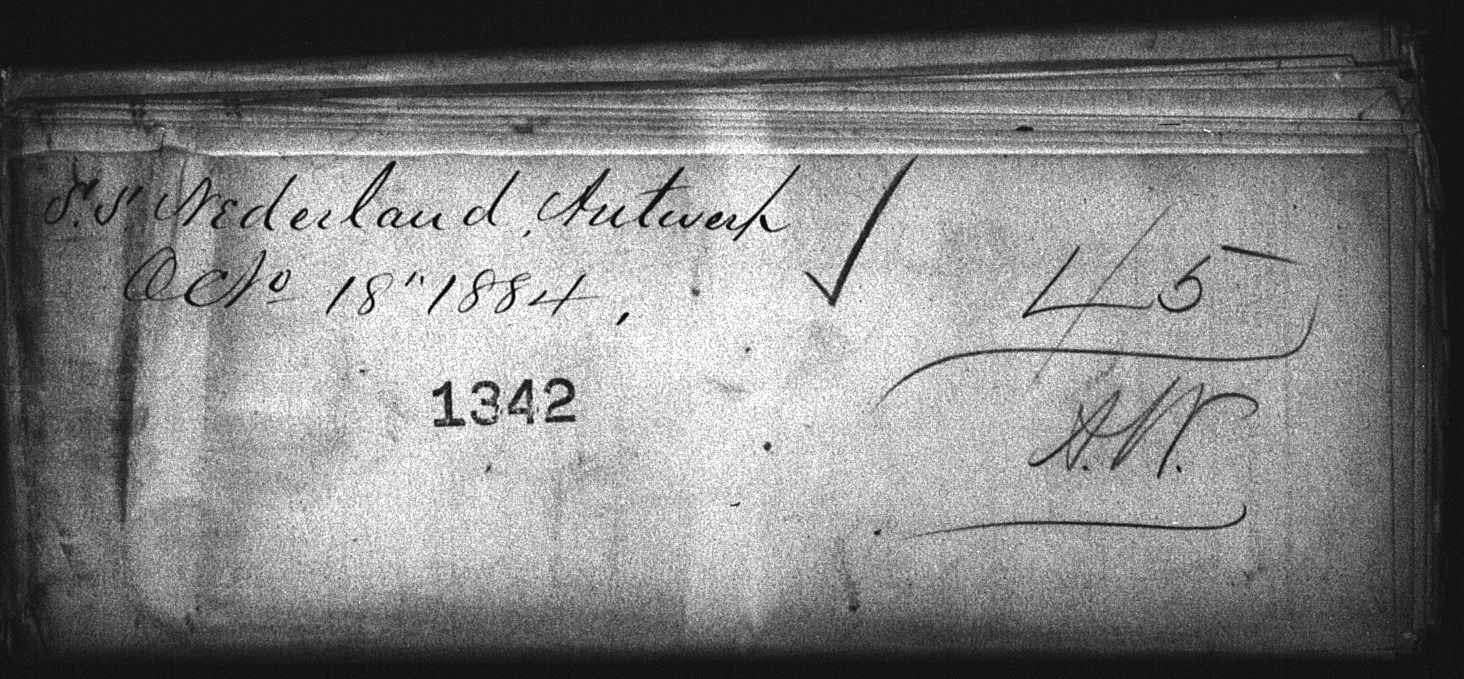 S.S. Nederland, Antwerp
Octo 18" 1884,
45
1342